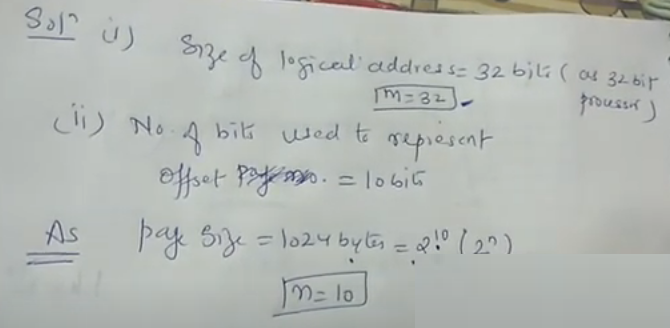 Solⁿ i) Size of logical address = 32 bits (as 32 bit processor)
m = 32
(ii) No. of bits used to represent
offset = 10 bits
As page size = 1024 bytes = 2¹⁰ (2ⁿ)
n = 10